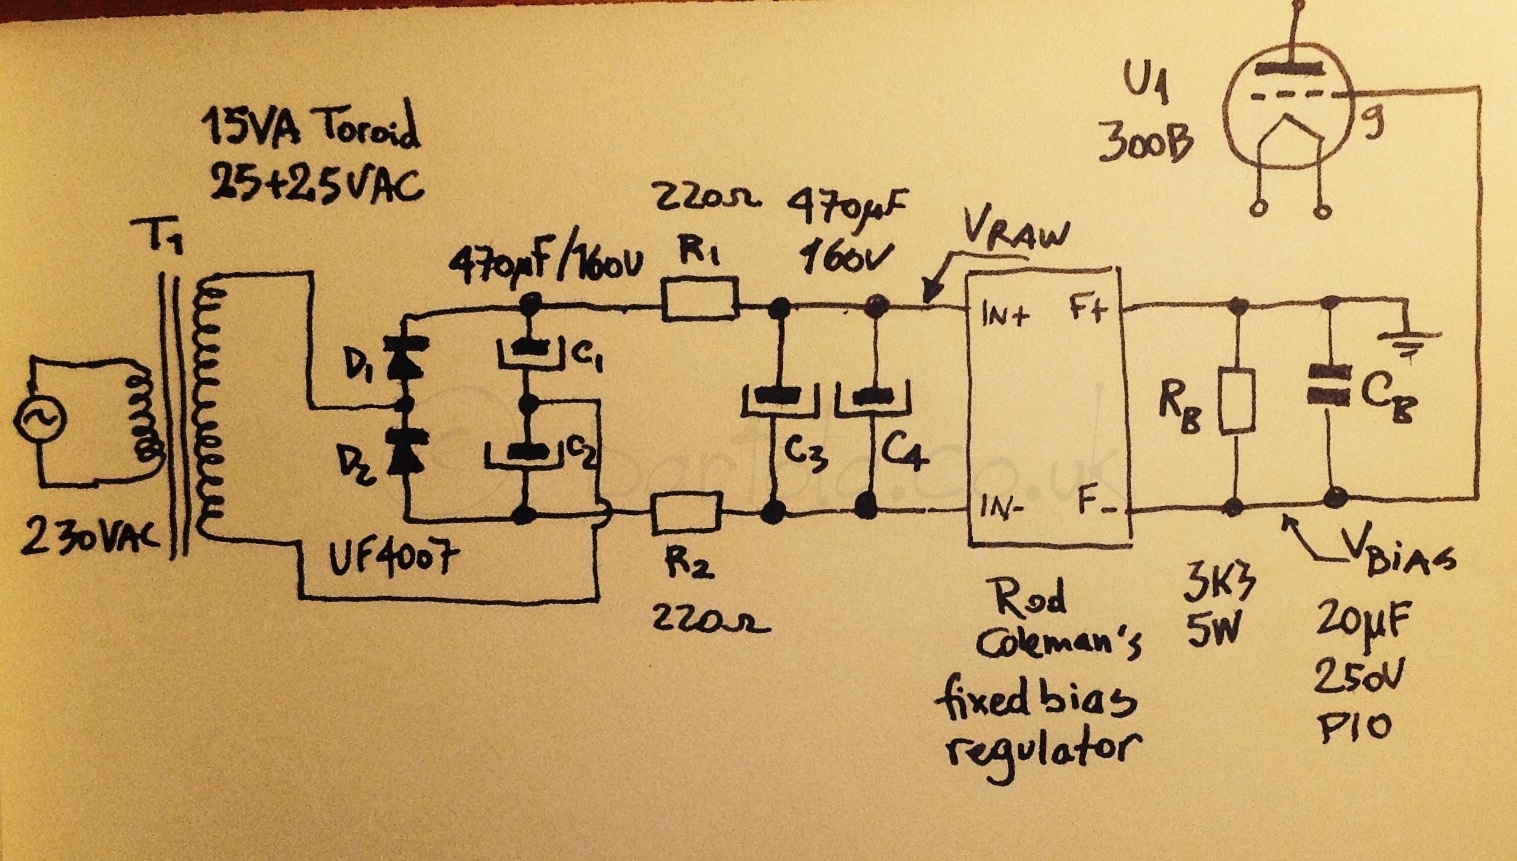 15VA Toroid
25+25VAC
T1
230VAC
D1
D2
UF4007
470µF/160V
C1
C2
220Ω
R1
R2
220Ω
470µF
160V
C3
C4
VRAW
IN+
F+
IN-
F-
Rod
Coleman's
fixed bias
regulator
RB
3K3
5W
CB
VBiAS
20µF
250V
PIO
U1
300B
g